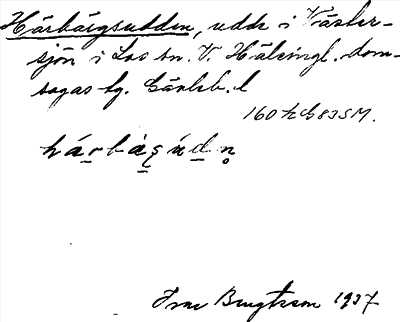 Härbärgsudden, udde i Väster-
sjön i Los sn. V. Hälsingl. dom-
sagas tg. Gävleb. l
hárbärgúdn
Ivar Bengtsson 1937